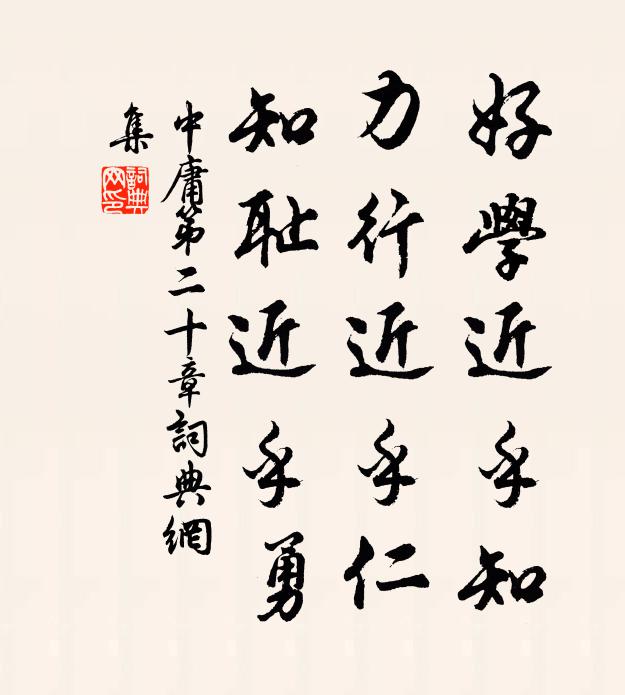 好學近乎知
力行近乎仁
知耻近乎勇
中庸第二十章詞典網
集
詞典
网印